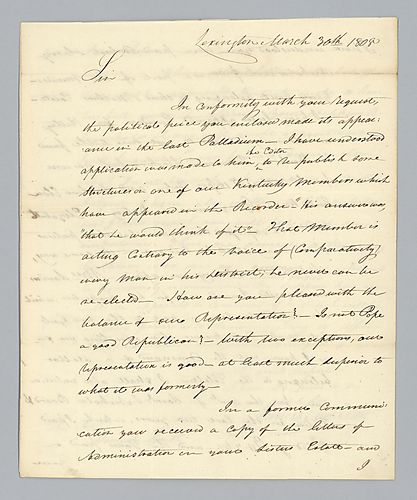 Lexington March 30th 1808
Sir
In Conformity with your request,
the political piece you enclosed made its appear=
ance in the last Palladium — I have understood
the Editor
application was made to him, to Re publish some
Strictures on one of our Kentucky Members which
have appeared in the Recorder" His answer was,
"that he would think of it" — That Member is
acting Contrary to the voice of (Comparatively)
every Man in his District; he never can be
re-elected — How are you pleased with the
balance of our Representation? — Is not Pope
a good Republican? — With two exceptions, our
representation is good — at least much superior to
what it was formerly —
In a former Communi=
cation you received a copy of the letters of
Administration on your Sisters Estate — and
I